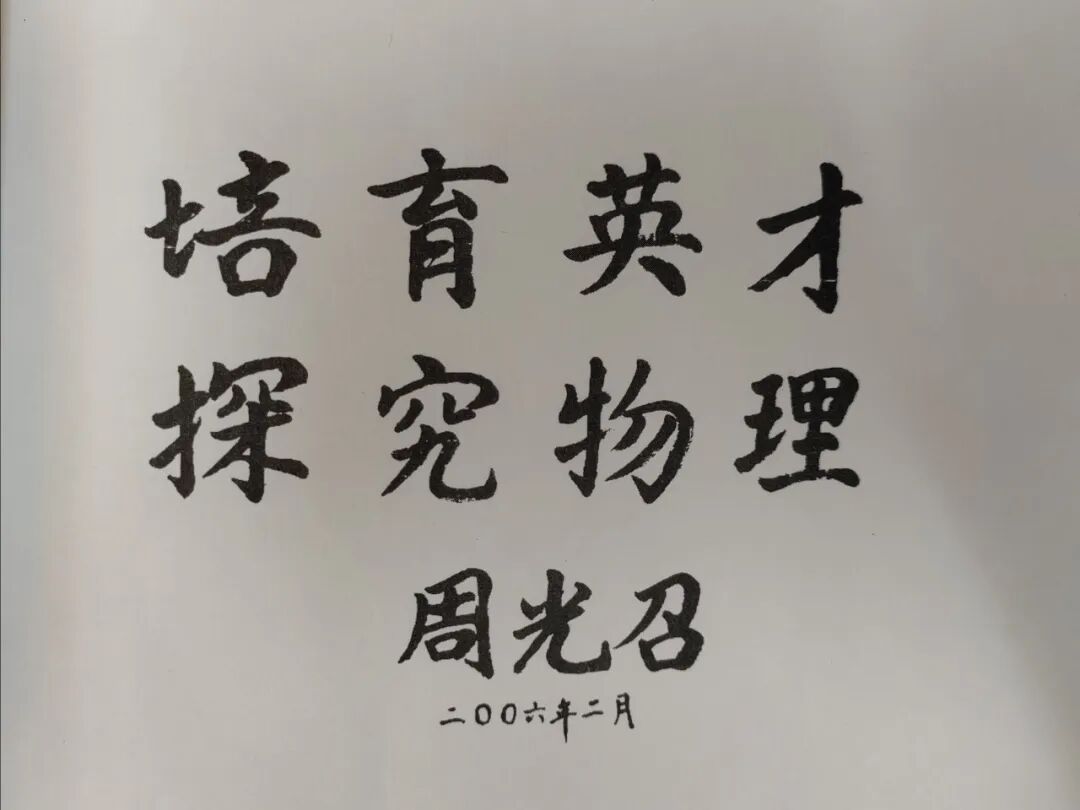 培育英才
探究物理
周光召
二〇〇六年二月